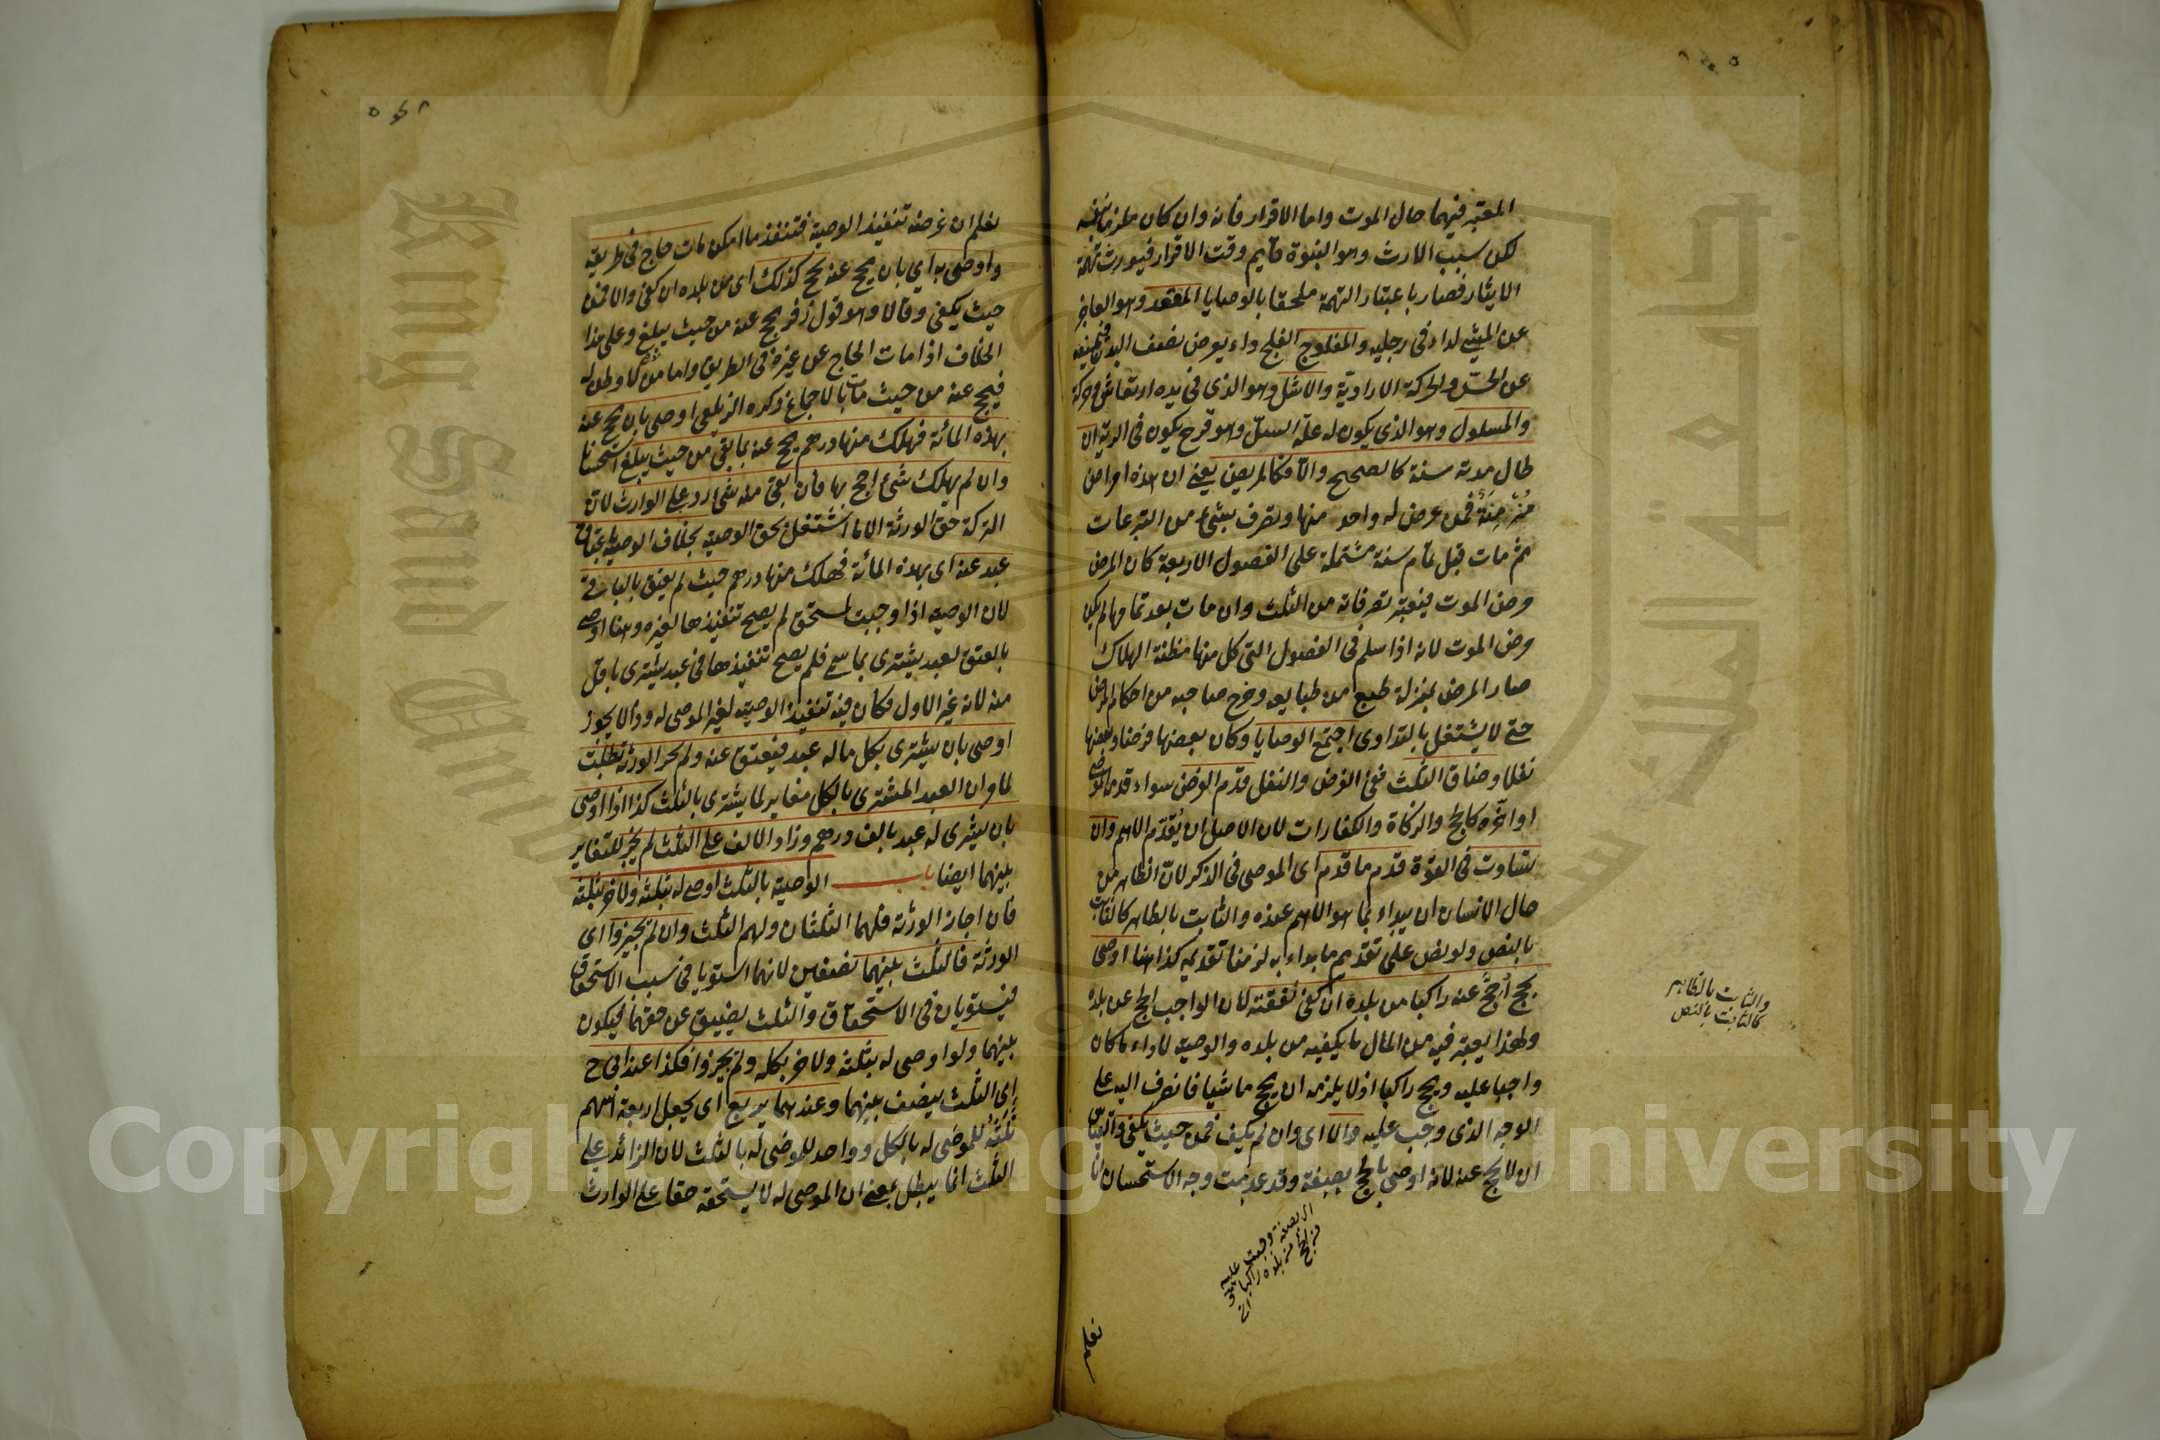 المعتبر فيهما حال الموت واما الاقرار فانه وان كان ملزما بنفسه
لكن سبب الارث وهو البنوة قايم وقت الاقرار فيورث تهمة
الايثار فصار باعتبار التهمة ملحقا بالوصايا المقعد وهو العاجز
عن المشي لداء في رجليه والمفلوج الفلج داء يعرض بنصف البدن فيمنعه
عن الحس والحركة الارادية والاشل وهو الذي في يده ارتعاش وحركة
والمسلول وهو الذي يكون له علة السل وهو قرح يكون في الرية ان
طال مدته سنة كالصحيح والا فكالمريض يعني ان هذه امراض
مزمنة فمن عرض له واحد منها وتصرف بشئ من التبرعات
ثم مات قبل تمام سنة مشتملة على الفصول الاربعة كان المرض
مرض الموت فيعتبر تصرفاته من الثلث وان مات بعد تمامها لم يكن
مرض الموت لانه اذا سلم في الفصول التي كل منها مظنة الهلاك
صار المرض بمنزلة طبع من طبايعه وخرج صاحبه من احكام المرض
حتى لا يشتغل بالتداوى اجتمع الوصايا وكان بعضها فرضا وبعضها
نفلا وضاق الثلث فمن الفرض والنفل قدم الفرض سواء قدم الموصى
او اخره كالحج والزكاة والكفارات لان الاصل ان يقدم الاهم وان
تساوت في القوة قدم ما قدم اى الموصى في الذكر لان الظاهر من
حال الانسان ان يبداء بما هو الاهم عنده والثابت بالظاهر كالثابت
بالنص ولو نص على تقديم ما بداء به لزمنا تقديمه كذا هنا اوصى
بحج احج عنه راكبا من بلده ان كفى نفقته لان الواجب الحج عن بلده
ولهذا يعتبر فيه من المال ما يكفيه من بلده والوصية لاداء ما كان
واجبا عليه ويحج راكبا اذ لا يلزمه ان يحج ماشيا فانصرف اليه على
الوجه الذي وجب عليه والا اى وان لم يكف فمن حيث يكفي والقياس
ان لا يحج عنه لانه اوصى بالحج بصفة وقد عدمت وجه الاستحسان انا
والثابت بالظاهر
كالثابت بالنص
نعلم
نعلم ان غرضه تنفيذ الوصية فتنفذ ما امكن مات حاج في طريقه
واوصى به اي بان يحج عنه يحج كذلك اى من بلده ان كفى والا فمن
حيث يكفي وقالا وهو قول زفر يحج عنه من حيث يبلغ وعلى هذا
الخلاف اذا مات الحاج عن غيره في الطريق واما من لا وطن له
فيحج عنه من حيث مات بالاجماع ذكره الزيلعي اوصى بان يحج عنه
بهذه المائة فهلك منها درهم يحج عنه بما بقي من حيث يبلغ استحسانا
وان لم يهلك شئ احج بها فان بقي منه شئ رد على الوارث لان
التركة حق الورثة الا ما اشتغل بحق الوصية بخلاف الوصية باعتاق
عبد عنه اى بهذه المائة فهلك منها درهم حيث لم يعتق بالباقي
لان الوصية اذا وجبت لمستحق لم يصح تنفيذها لغيره وهنا اوصى
بالعتق لعبد يشترى بما سمى فلم يصح تنفيذها في عبد يشترى باقل
منه لانه غير الاول فكان فيه تنفيذ الوصية لغير الموصى له وذا لا يجوز
اوصى بان يشترى بكل ماله عبد فيعتق عنه ولم يجز الورثة بطلت
لما مر ان العبد المشترى بالكل مغاير لما يشترى بالثلث كذا اذا اوصى
بان يشترى له عبد بالف درهم وزاد الالف على الثلث لم يجز للتغاير
بينهما ايضا باب الوصية بالثلث اوصى له بثلثه ولآخر بثلثه
فان اجاز الورثة فلهما الثلثان ولهم الثلث وان لم يجيزوا اى
الورثة فالثلث بينهما نصفين لانهما استويا في سبب الاستحقاق
فيستويان في الاستحقاق والثلث يضيق عن حقهما فيكون
بينهما ولو اوصى له بثلثه ولآخر بكله ولم يجيزوا فكذا عند ابى ح
اى الثلث ينصف بينهما وعندهما يربع اى يجعل اربعة اسهم
ثلثة للموصى له بالكل وواحد للموصى له بالثلث لان الزائد على
الثلث انما يبطل بمعنى ان الموصى له لا يستحقه حقا على الوارث
Copyright © King Saud University
King Saud University